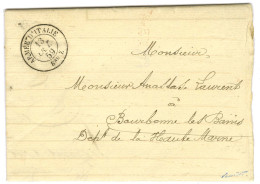 ARMÉE D'ITALIE
59
Monsieur
Monsieur Anastase Laurent
à
Bourbonne les Bains
Dépt de la Haute Marne